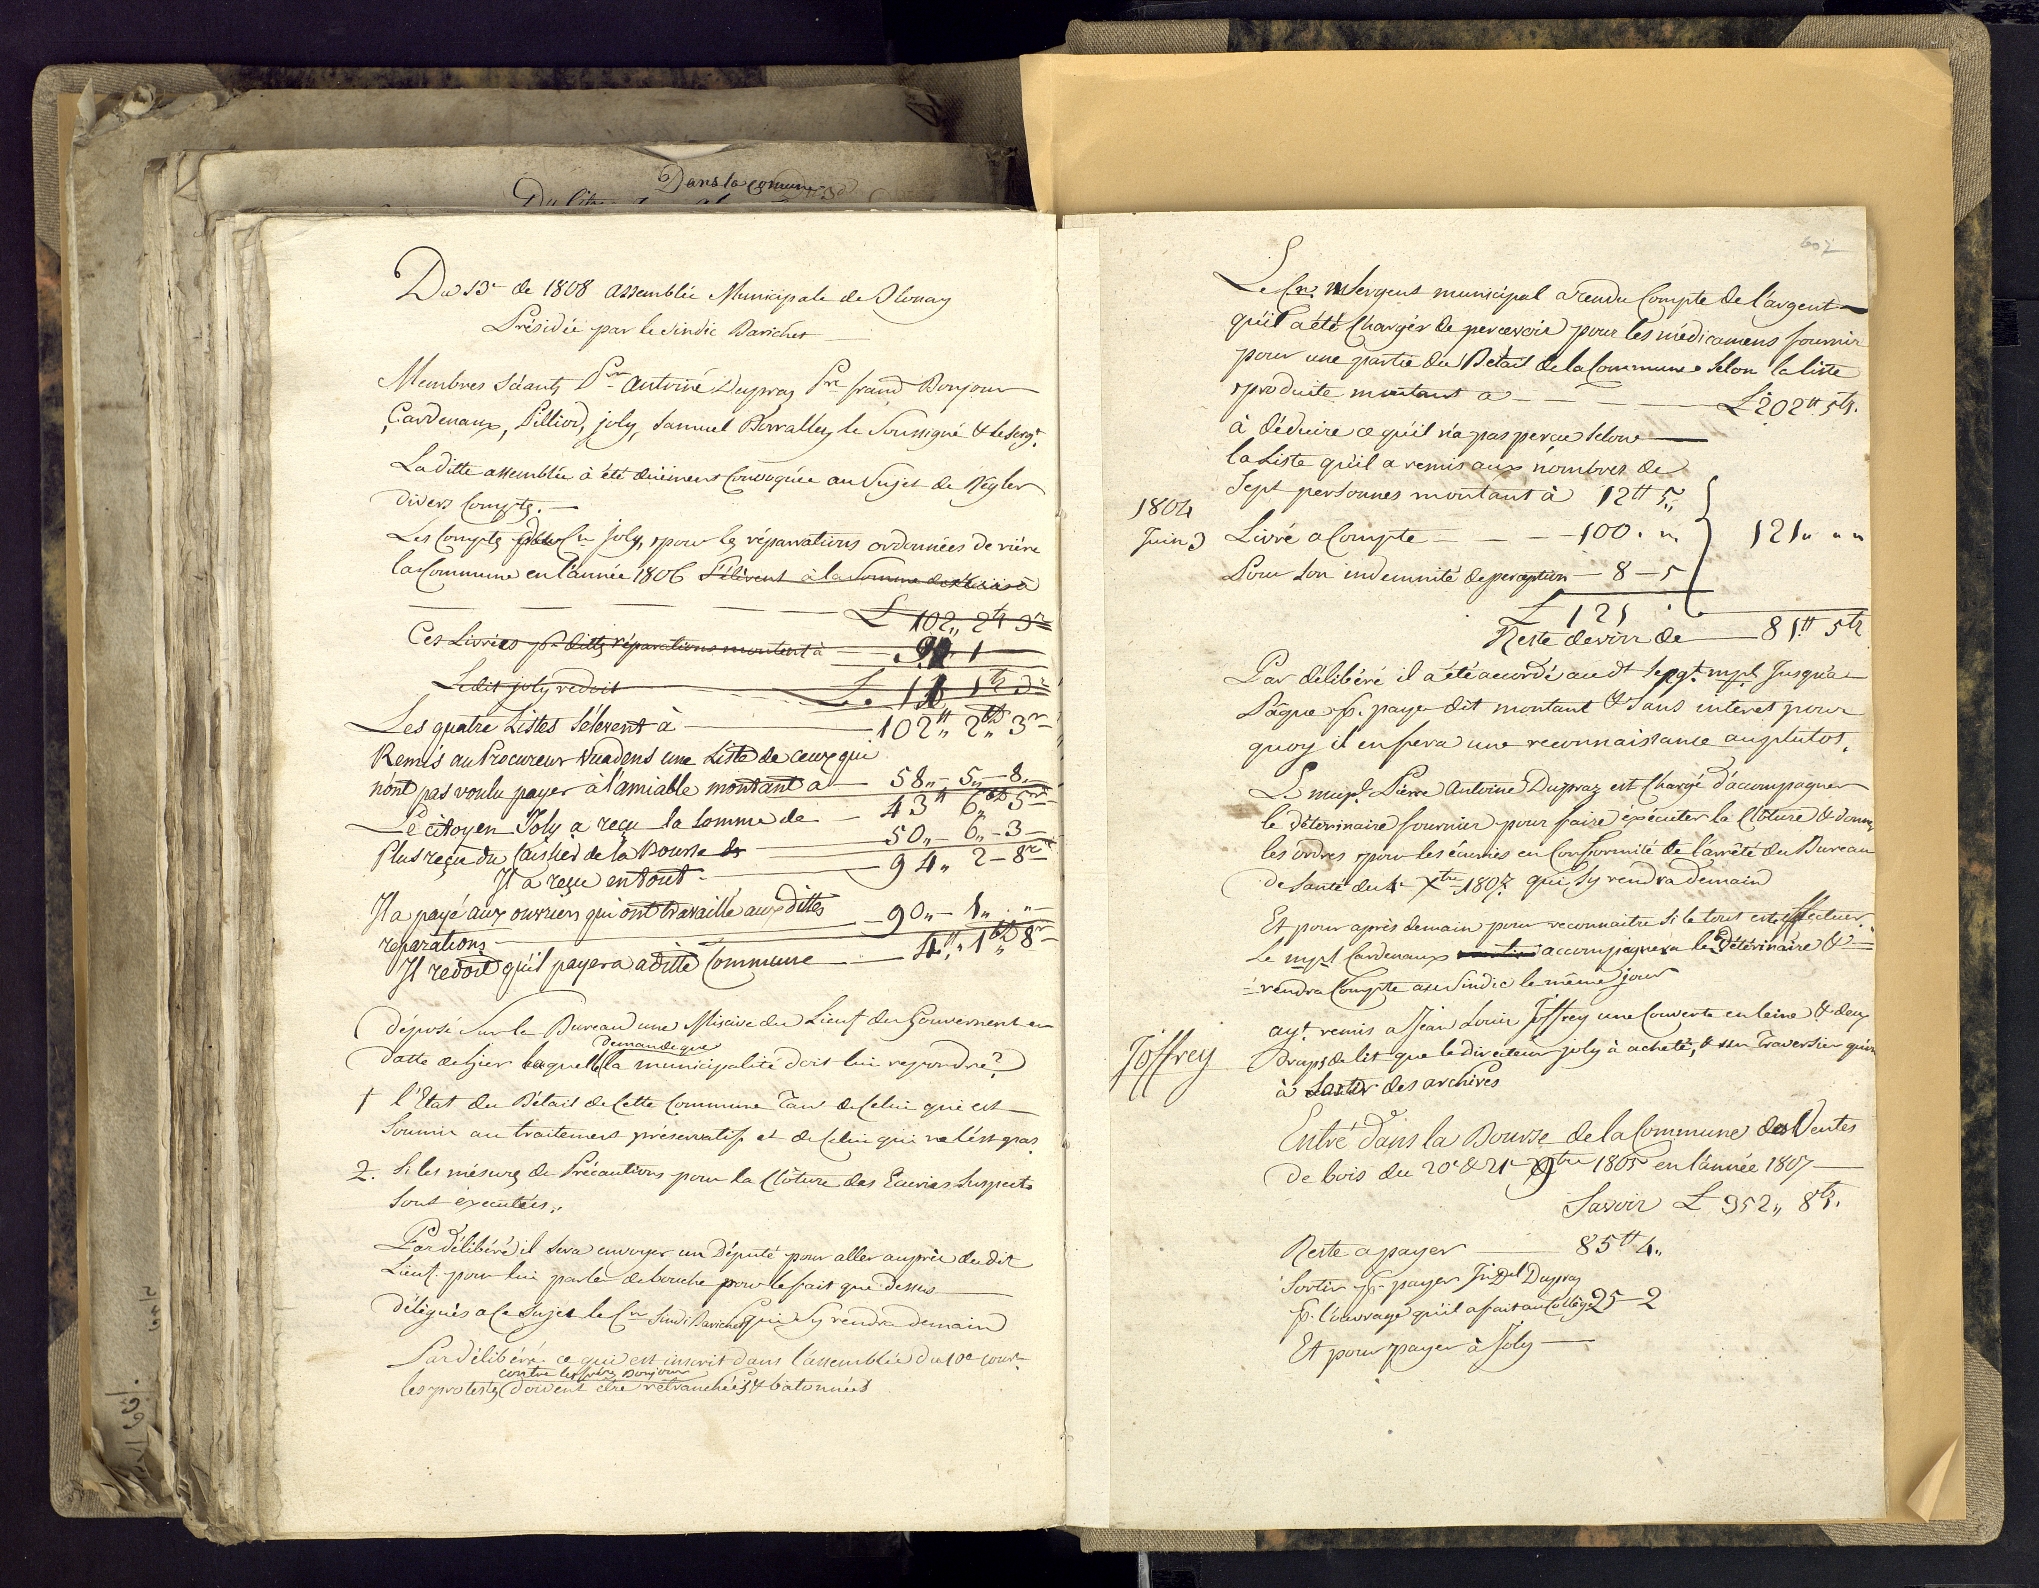 Dans la Commune
Du 13e de 1808 assemblée Municipale de Blonay
Présidée par le Sindic Barichet
Membres Séants Prre Antoine Dupraz Pre frans Bonjour
Cardenaux, Pilliod, joly, Samuel Borralley le Soussigné & le Sergt.
La ditte assemblée à été duëment Convoquée au Sujet de Regler
divers Compts.
Les Compts du Cn joly, pour les réparations ordonnées de riére
la Commune en l'année 1806 S'élévent à la Somme
L 102,, 2 ts 3 r
Ces Livrées pr dittes réparations montent à 91,, 1
Ledit joly redoit L. 11 1 ts 3 r
Les quatre Listes S'élevent à 102 tt,, 2 ts,, 3 r
Remis au Procureur Vuadens une Liste de ceux qui
n'ont pas voulu payer à l'amiable montant a 58,,- 5,,- 8
Le citoyen Joly a reçu la somme de 43 tt 6,, ts 5 r
Plus reçu du Caissier de la Bourse 50,,- 6,,- 3
Il a reçu en tout 94,, 2 - 8 r
Il a payé aux ouvriers qui ont travaillé aux dittes
reparations 90,,- 1,, ,,
Il redoit qu'il payera a ditte Commune 4 tt,, 1 ts,, 8 r
déposé Sur le Bureau une Missive du Lieut du Gouvernent en
datte de hier laquelle demande que la municipalité doit lui repondre?
1 l'Etat du Bétail de Cette Commune Tant de Celui qui est
Soumis au traitement préservatif et de Celui qui ne l'est pas
2. Si les mésures de Précautions pour la Clôture des Ecuries Suspects
Sont éxecutées,,
Par délibéré il Sera envoyer un Député pour aller auprès du dit
Lieut. pour lui parler de bouche pour le fait que dessus
délégués a Ce Sujet le Cn Sindic Barichet qui Sy rendra demain
Par délibéré ce qui est inscrit dans l'assemblée du 10e cour
les protests contre les frères Bonjour doivent être rétranchées & bâtonnées
602
Le Cn Sergent municipal a rendu Compte de l'argent
qu'il a été Chargér de percevoir pour les médicamens fournir
pour une partie du Bétail de la Commune Selon la liste
produite montant a L 202 tt 5 ts.
à déduire ce qu'il n'a pas percu Selon
la Liste qu'il a remis aux nombres de
Sept personnes montant à 12 tt 5,,
1804
Juin 3 Livré a Compte 100. ,, 121,, ,, ,,
Pour Son indemnité de perception 8 - 5
L 121
Reste devoir de 81 tt 5 ts
Par délibéré il a été accordé audt Sergt. mpl. Jusqu'a
Pâque pr. payer dit montant & Sans interet pour
quoy il en fera une reconnaissance au plutot,
Le mupl. Pierre Antoine Dupraz est Chargé d'accompagner
le véterinaire fournier pour faire éxécuter la Clôture & donner
les ordres pour les écuries en Conformité de l'arrêté du Bureau
de Santé du 4e Xbre 1807 qui Sy rendra demain
Et pour après demain pour reconnaitre Si le tout est effectuer
Le mpl. Cardenaux accompagnera le véterinaire &
rendra Compte au Sindic le même jour
Joffrey
ayt. remis a Jean Louis Joffrey une Couverte en leine & deux
draps de lit que le directeur joly à acheté, & un Traversier qu'on
à Sortir des archives
Entré dans la Bourse de la Commune des Ventes
de bois du 20e & 21e 9bre 1805 en l'année 1807
Savoir L 952,, 8 ts.
Reste a payer 85 tt 4,,
Sortir pr payer Jn Dl Dupraz
pr. l'ouvrage qu'il a fait au Collège 25 - 2
Et pour payer à Joly